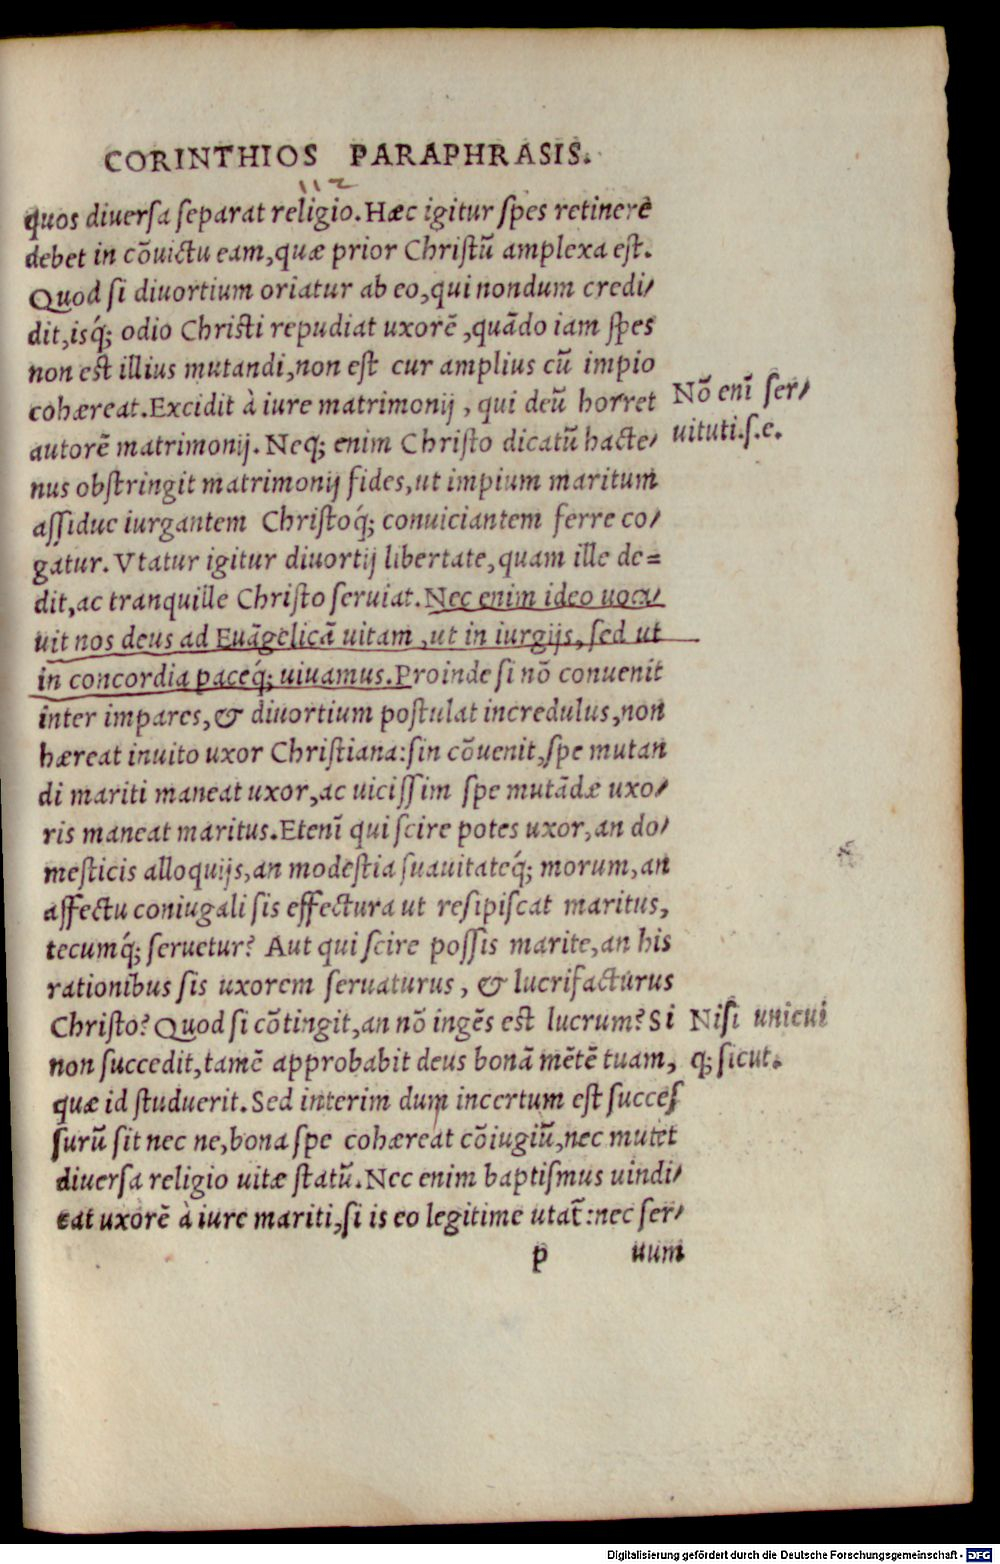 CORINTHIOS PARAPHRASIS.
112
quos diuersa separat religio. Hæc igitur spes retinere
debet in cōuictu eam, quæ prior Christū amplexa est.
Quod si diuortium oriatur ab eo, qui nondum credi/
dit, isq́; odio Christi repudiat uxorē, quādo iam spes
non est illius mutandi, non est cur amplius cū impio
cohæreat. Excidit à iure matrimonij, qui deū horret
autorē matrimonij. Neq; enim Christo dicatū hacte/
nus obstringit matrimonij fides, ut impium maritum
assidue iurgantem Christoq́; conuiciantem ferre co/
gatur. Vtatur igitur diuortij libertate, quam ille de=
dit, ac tranquille Christo seruiat. Nec enim ideo uoca/
uit nos deus ad Euāgelicā uitam, ut in iurgijs, sed ut
in concordia paceq́; uiuamus. Proinde si nō conuenit
inter impares, & diuortium postulat incredulus, non
hæreat inuito uxor Christiana: sin cōuenit, spe mutan
di mariti maneat uxor, ac uicissim spe mutādæ uxo/
ris maneat maritus. Etenī qui scire potes uxor, an do/
mesticis alloquijs, an modestia suauitateq́; morum, an
affectu coniugali sis effectura ut resipiscat maritus,
tecumq́; seruetur? Aut qui scire possis marite, an his
rationibus sis uxorem seruaturus, & lucrifacturus
Christo? Quod si cōtingit, an nō ingēs est lucrum? Si
non succedit, tamē approbabit deus bonā mētē tuam,
quæ id studuerit. Sed interim dum incertum est succes
surū sit nec ne, bona spe cohæreat cōiugiū, nec mutet
diuersa religio uitæ statū. Nec enim baptismus uindi/
cat uxorē à iure mariti, si is eo legitime utat̄: nec ser/
p uum
Nō enī ser/
uituti.s.e.
Nisi unicui
q; sicut.
Digitalisierung gefördert durch die Deutsche Forschungsgemeinschaft - DFG